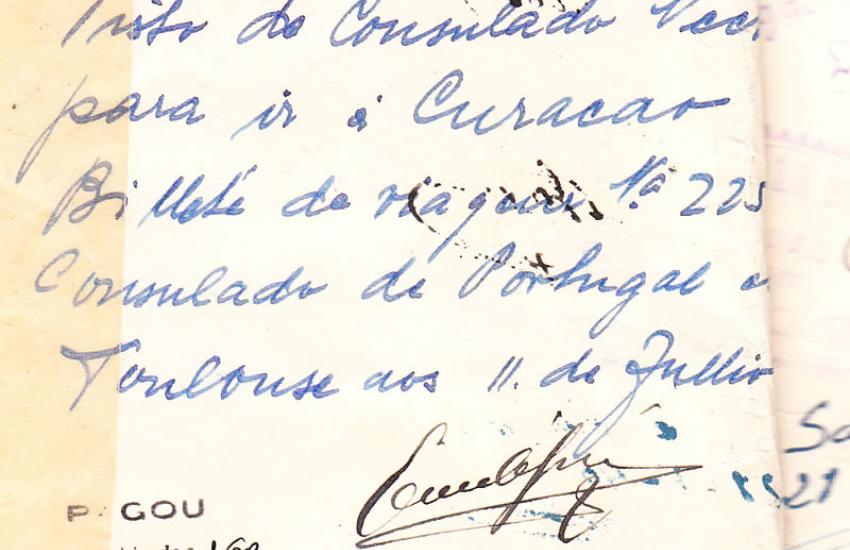 Visto do Consulado
para ir á Curacao
Billete de viagem Nº 225
Consulado de Portugal
Toulouse aos 11. de Jullio
PAGOU
21